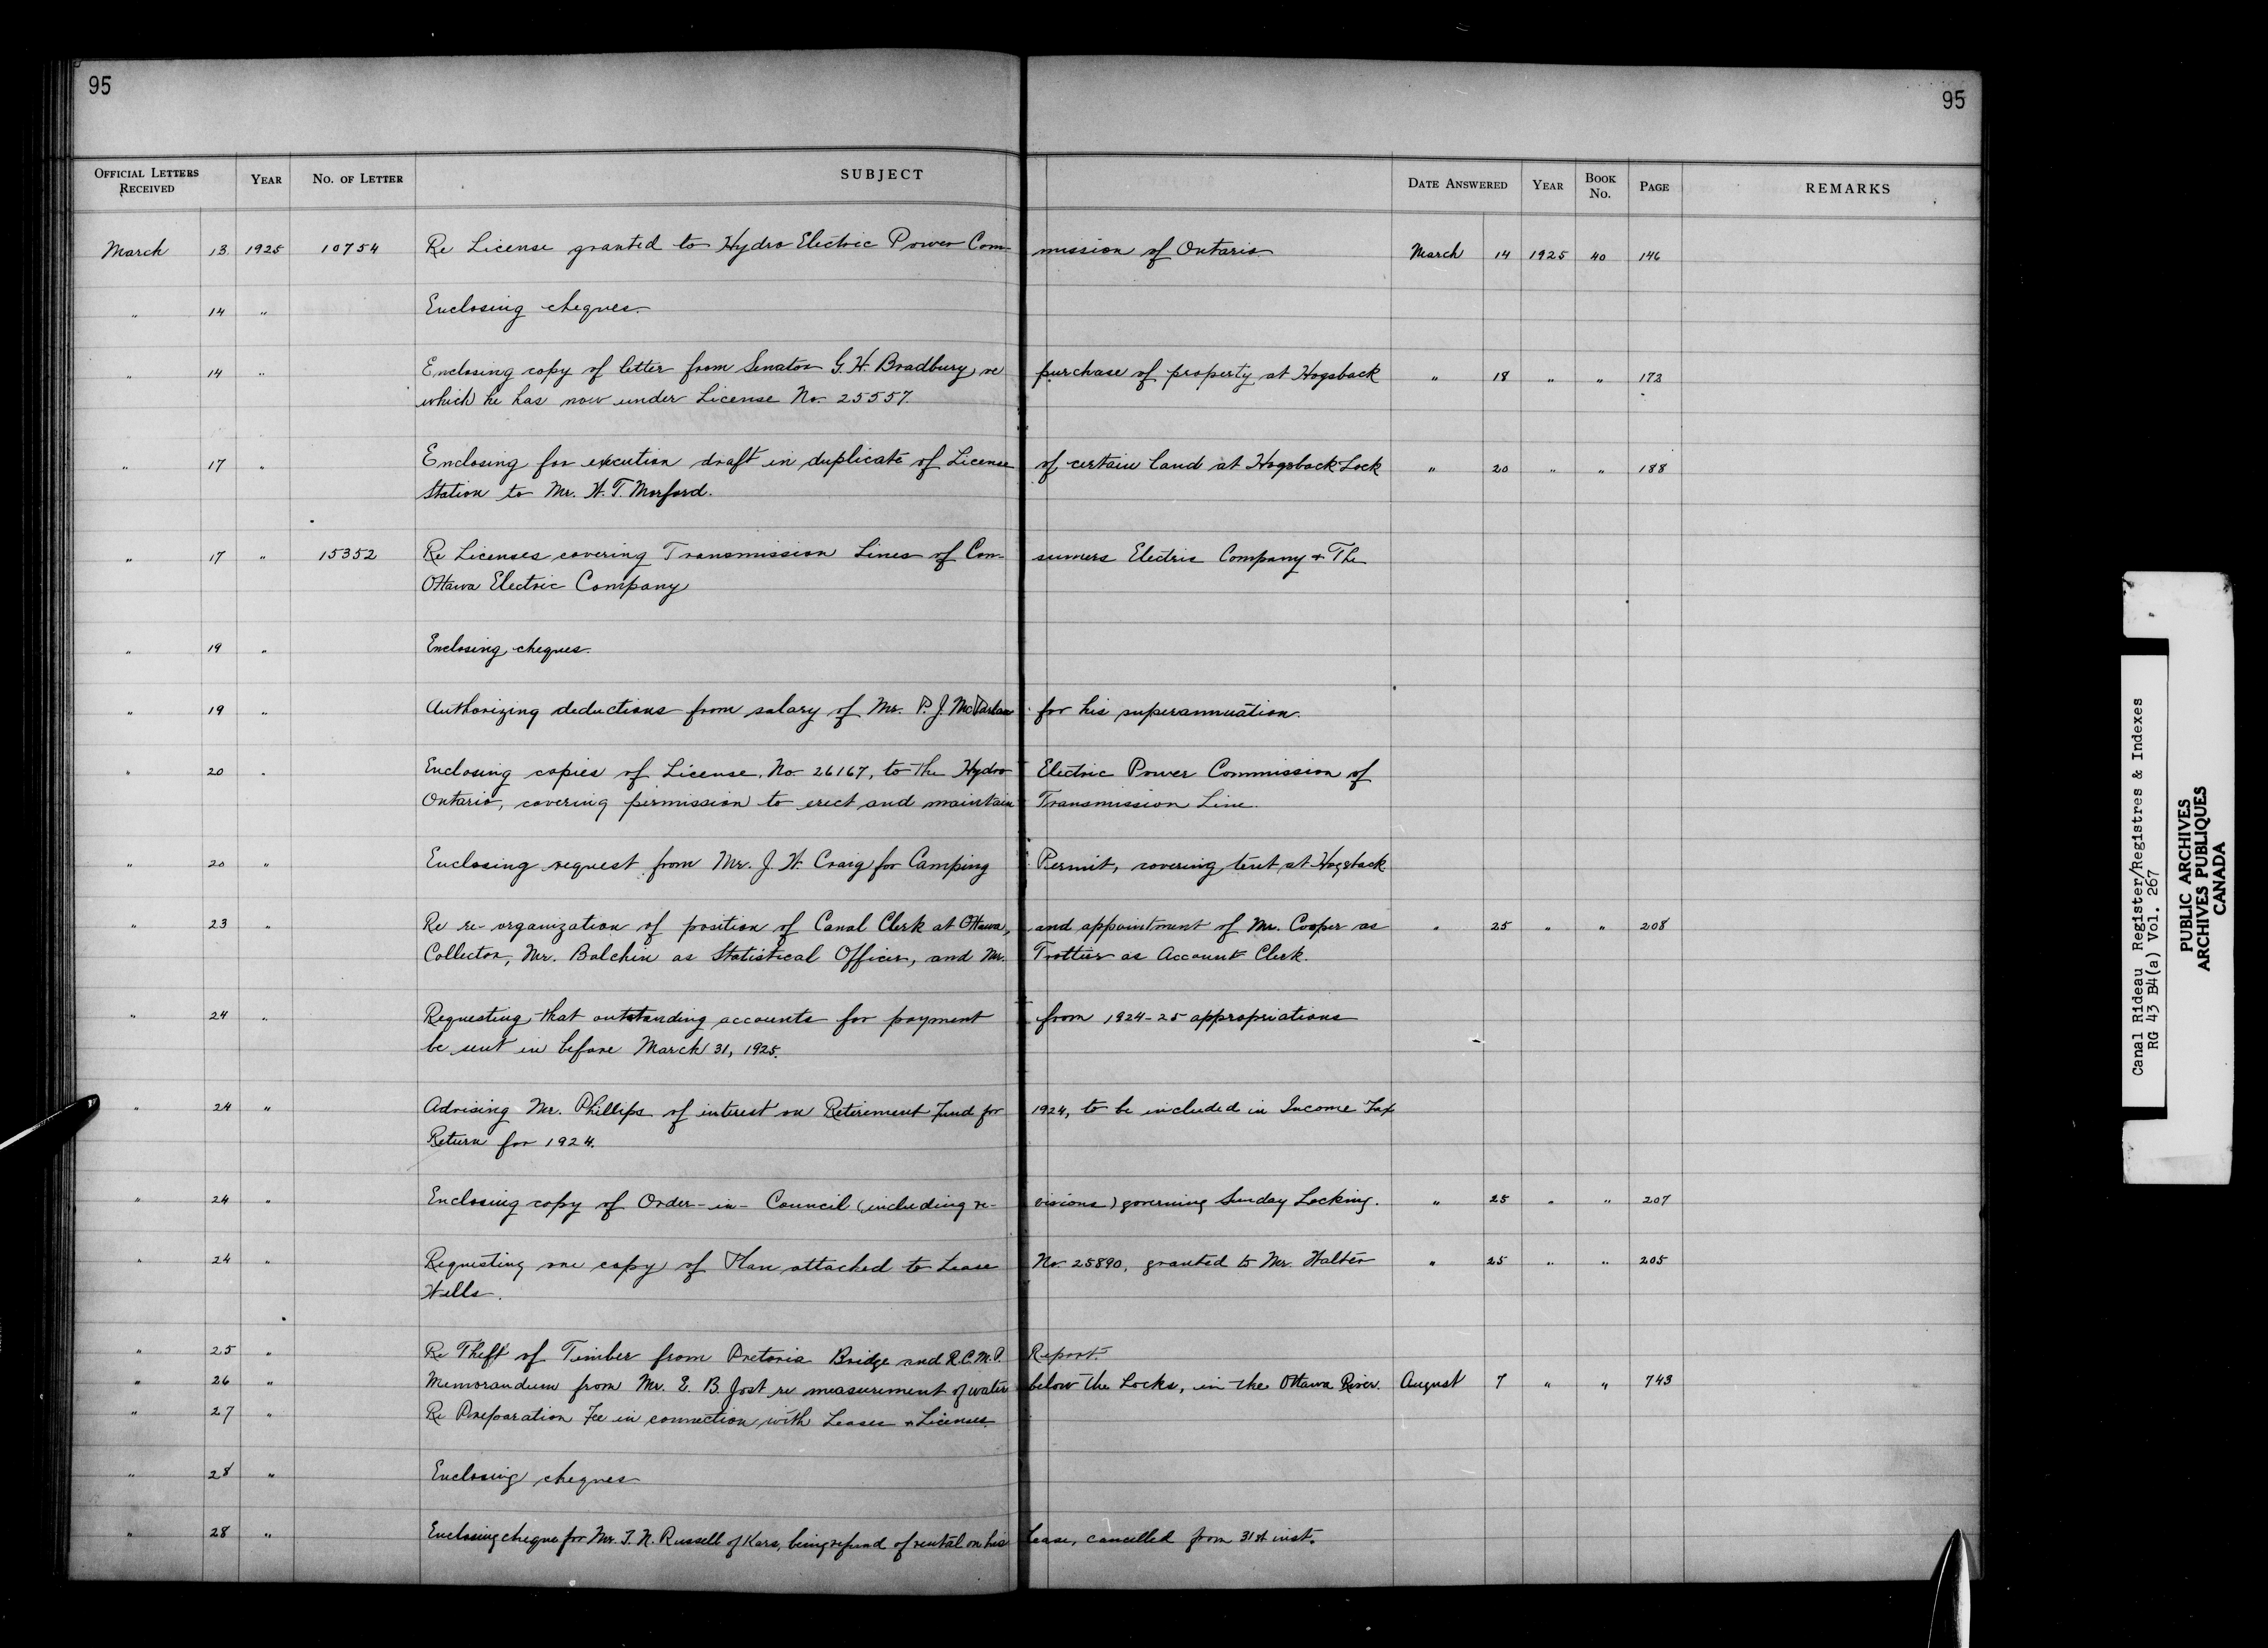 95
95
OFFICIAL LETTERS RECEIVED YEAR NO. OF LETTER SUBJECT DATE ANSWERED YEAR BOOK NO. PAGE REMARKS
March 13 1925 10754 Re License granted to Hydro Electric Power Com- mission of Ontario March 14 1925 40 146
" 14 " Enclosing cheques.
" 14 " Enclosing copy of letter from Senator G. H. Bradbury, re purchase of property at Hogsback " 18 " " 172
which he has now under License No. 25557.
" 17 " Enclosing for execution draft in duplicate of License of certain land at Hogsback Lock " 20 " " 188
Station to Mr. W. T. Morford.
" 17 " 15352 Re Licenses covering Transmission Lines of Con- sumers Electric Company & The
Ottawa Electric Company
" 19 " Enclosing cheques.
" 19 " Authorizing deductions from salary of Mr. P. J. McParlan for his superannuation.
" 20 " Enclosing copies of License, No. 26167, to the Hydro Electric Power Commission of
Ontario, covering permission to erect and maintain Transmission Line.
" 20 " Enclosing request from Mr. J. W. Craig for Camping Permit, covering tent at Hogsback
" 23 " Re re-organization of position of Canal Clerk at Ottawa, and appointment of Mr. Cooper as " 25 " " 208
Collector, Mr. Balchin as Statistical Officer, and Mr. Trottier as Account Clerk.
" 24 " Requesting that outstanding accounts for payment from 1924-25 appropriations
be sent in before March 31, 1925.
" 24 " Advising Mr. Phillips of interest on Retirement Fund for 1924, to be included in Income Tax
Return for 1924.
" 24 " Enclosing copy of Order-in-Council (including re- visions) governing Sunday Locking. " 25 " " 207
" 24 " Requesting one copy of Plan attached to Lease No. 25890, granted to Mr. Walter " 25 " " 205
Wells.
" 25 " Re Theft of Timber from Pretoria Bridge and R.C.M.P. Report.
" 26 " Memorandum from Mr. E. B. Jost re measurement of water below the Locks, in the Ottawa River. August 7 " " 743
" 27 " Re Preparation Fee in connection with Leases & Licenses.
" 28 " Enclosing cheques
" 28 " Enclosing cheque for Mr. T. N. Russell of Kars, being refund of rental on his Lease, cancelled from 31st inst.
Canal Rideau Register/Registres & Indexes
RG 43 B4(a) Vol. 267
PUBLIC ARCHIVES
ARCHIVES PUBLIQUES
CANADA